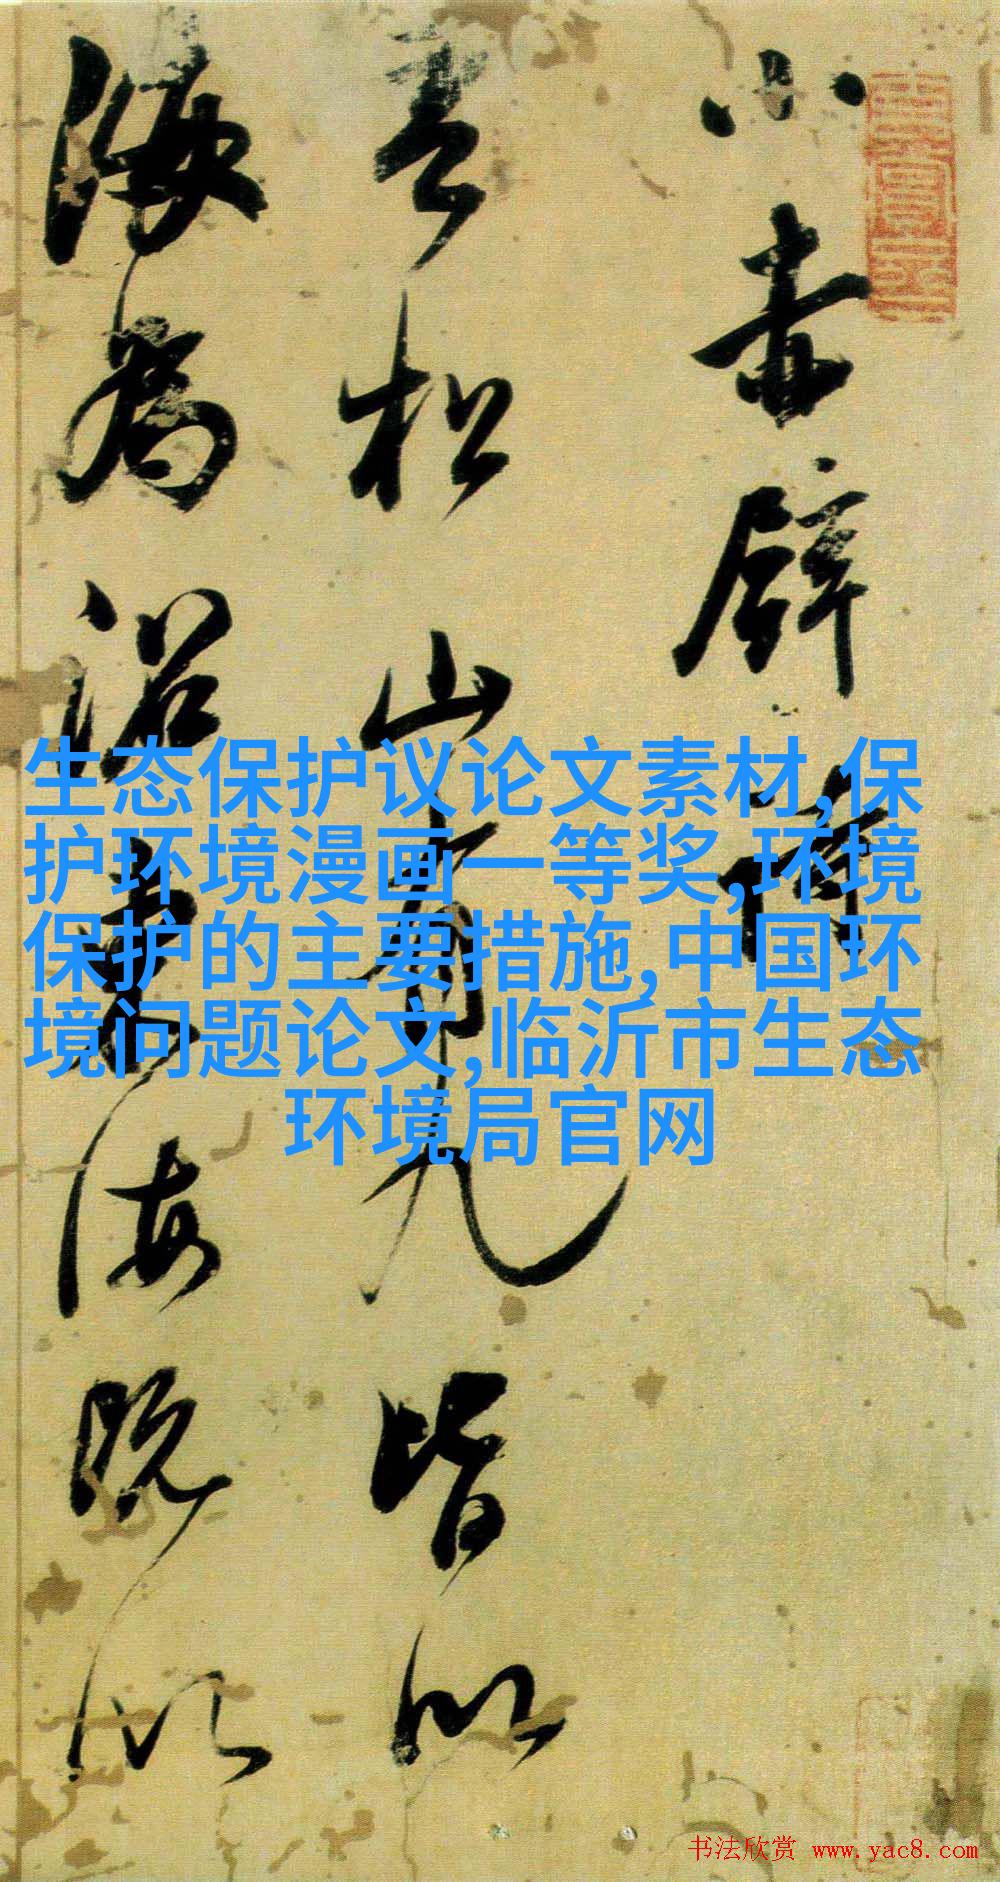 小赤壁詩
吾松山有九皆以
海為沼東海既以
生态保护议论文素材,保
护环境漫画一等奖,环境
保护的主要措施,中国环
境问题论文,临沂市生态
环境局官网
书法欣赏 www.yac8.com